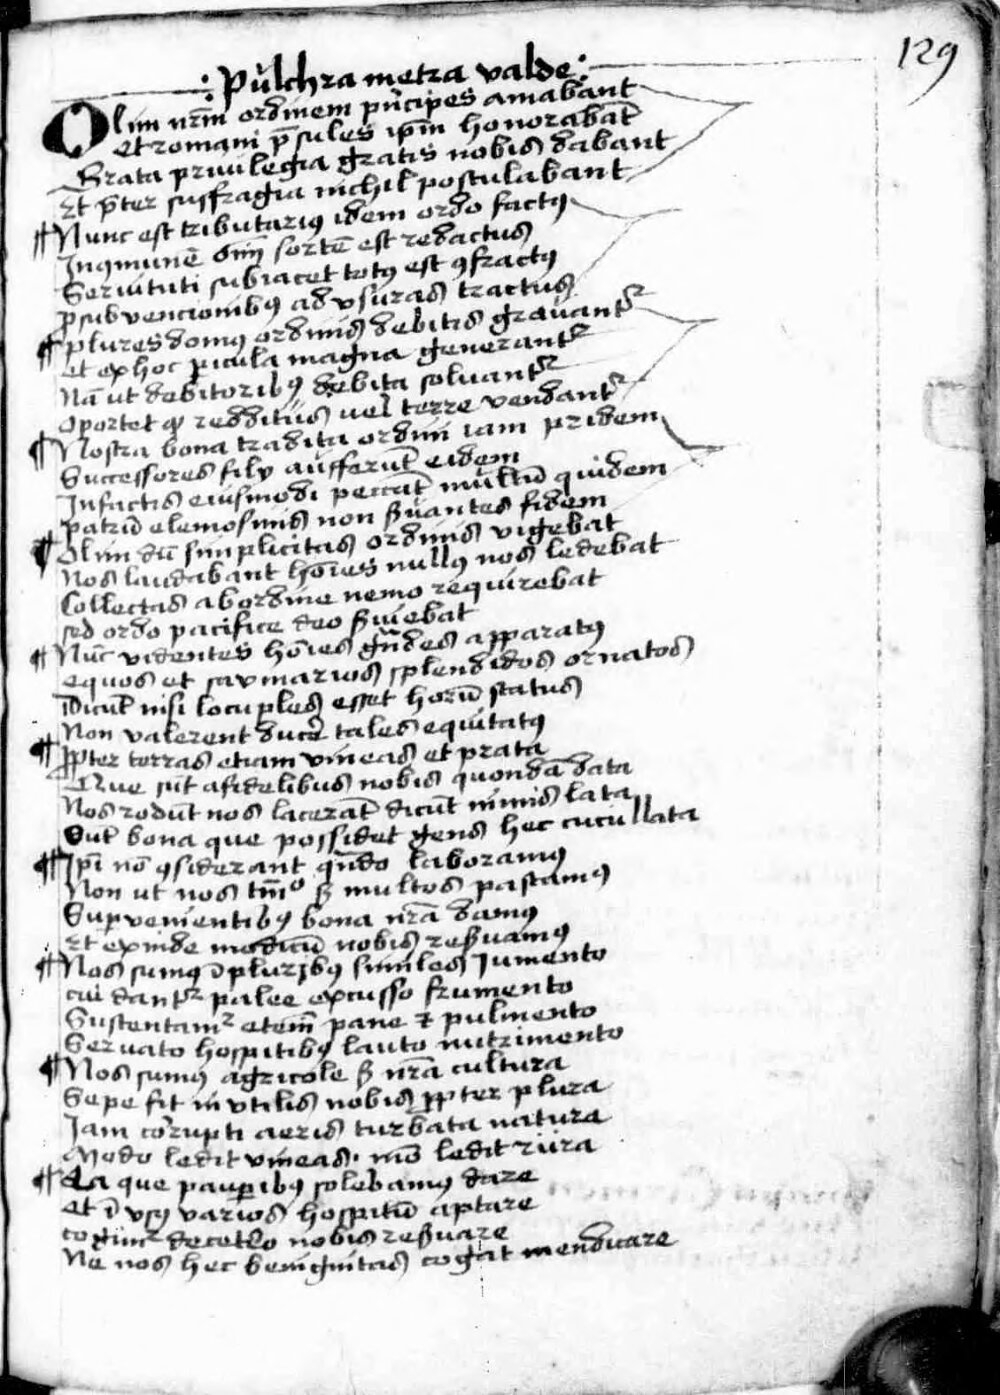 129
: Pulchra metra valde :
Olim nr̄m ordinem pn̄cipes amabant
et romani p̄sules ip̄m honorabāt
Grata priuilegia gratis nobis dabant
Et p̄ter suffragia nichil postulabant
Nunc est tributariꝯ idem ordo factꝯ
Inꝯmunē om̄ sortē est redactus
Seruituti subiacet totꝯ est ꝯfractꝯ
p̱ subvencionibꝯ ad vsuras tractus
plures domꝯ ordinis debitis grauantᷣ
et ex hoc ꝑicula magna generantᷣ
Nā ut debitoribꝯ debita soluantᷣ
oportet ꝙ redditus uel terre vendantᷣ
Nostra bona tradita ordini iam pridem
Successores filij aufferūt eidem
Infactis eiusmodi peccāt multū quidem
patrū elemosinis non ẜuantes fidem
Olim dū simplicitas ordinis vigebat
Nos laudabant hōies nullꝯ nos ledebat
Collectas ab ordine nemo requirebat
sed ordo pacifice deo ẜuiebat
Nūc videntes hōies gn̄des apparatꝯ
equos et saumarios splendidos ornatos
Dicūt nisi locuples esset horū status
Non valerent ducē tales equitatꝯ
ꝓpter terras etiam vineas et prata
Que sūt afidelibus nobis quondā data
Nos rodūt nos lacerāt dicūt nimis lata
Sūt bona que possidet gens hec cucullata
Ip̄i nō ꝯsiderant qn̄do laboramꝯ
Non ut nos tm̄o ẜ multos pascamꝯ
Supervenientibꝯ bona nr̄a damꝯ
Et exinde modicū nobis reẜuamꝯ
Nos sumꝯ ī pluribꝯ similes Jumento
cui dantᷣ palee excusso frumento
Sustentamᷣ etem̄ pane ⁊ pulmento
Seruato hospitibꝯ lauto nutrimento
Nos sumꝯ agricole ẜ nr̄a cultura
Sepe fit in vtilis nobis ꝓpter plura
Jam corupti aeris turbata natura
Modo ledit vineas· mō ledit rura
Ea que pauꝑibꝯ solebamꝯ dare
et ī vsꝯ varios hospitū aptare
cogimᷣ decetero nobis reẜuare
Ne nos hec benignitas cogat mendicare